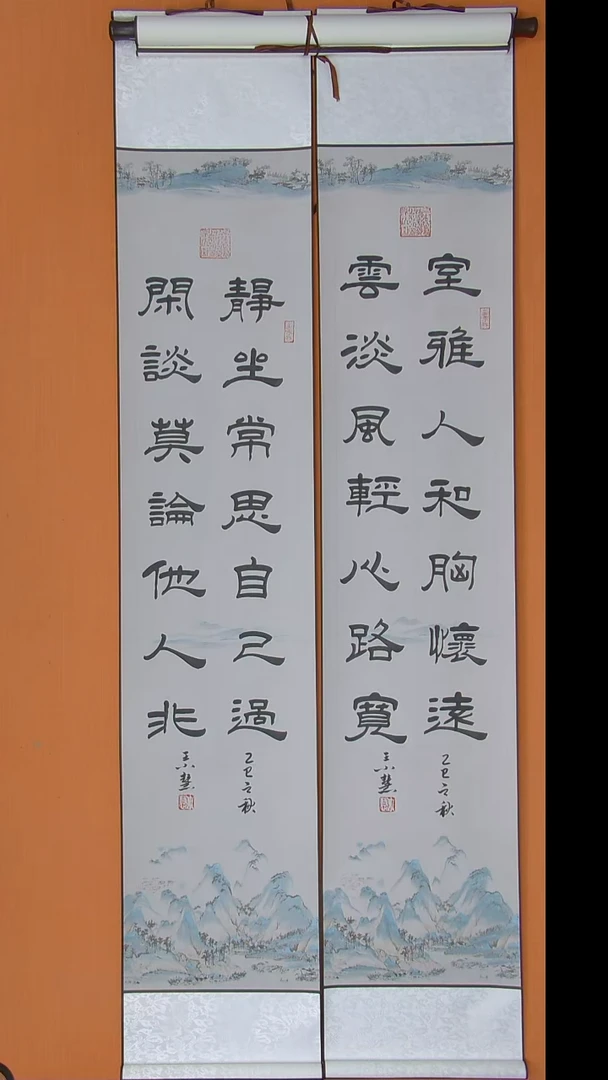 室雅人和胸懷遠
乙巳之秋
雲淡風輕心路寬
靜坐常思自己過
乙巳之秋
閑談莫論他人非